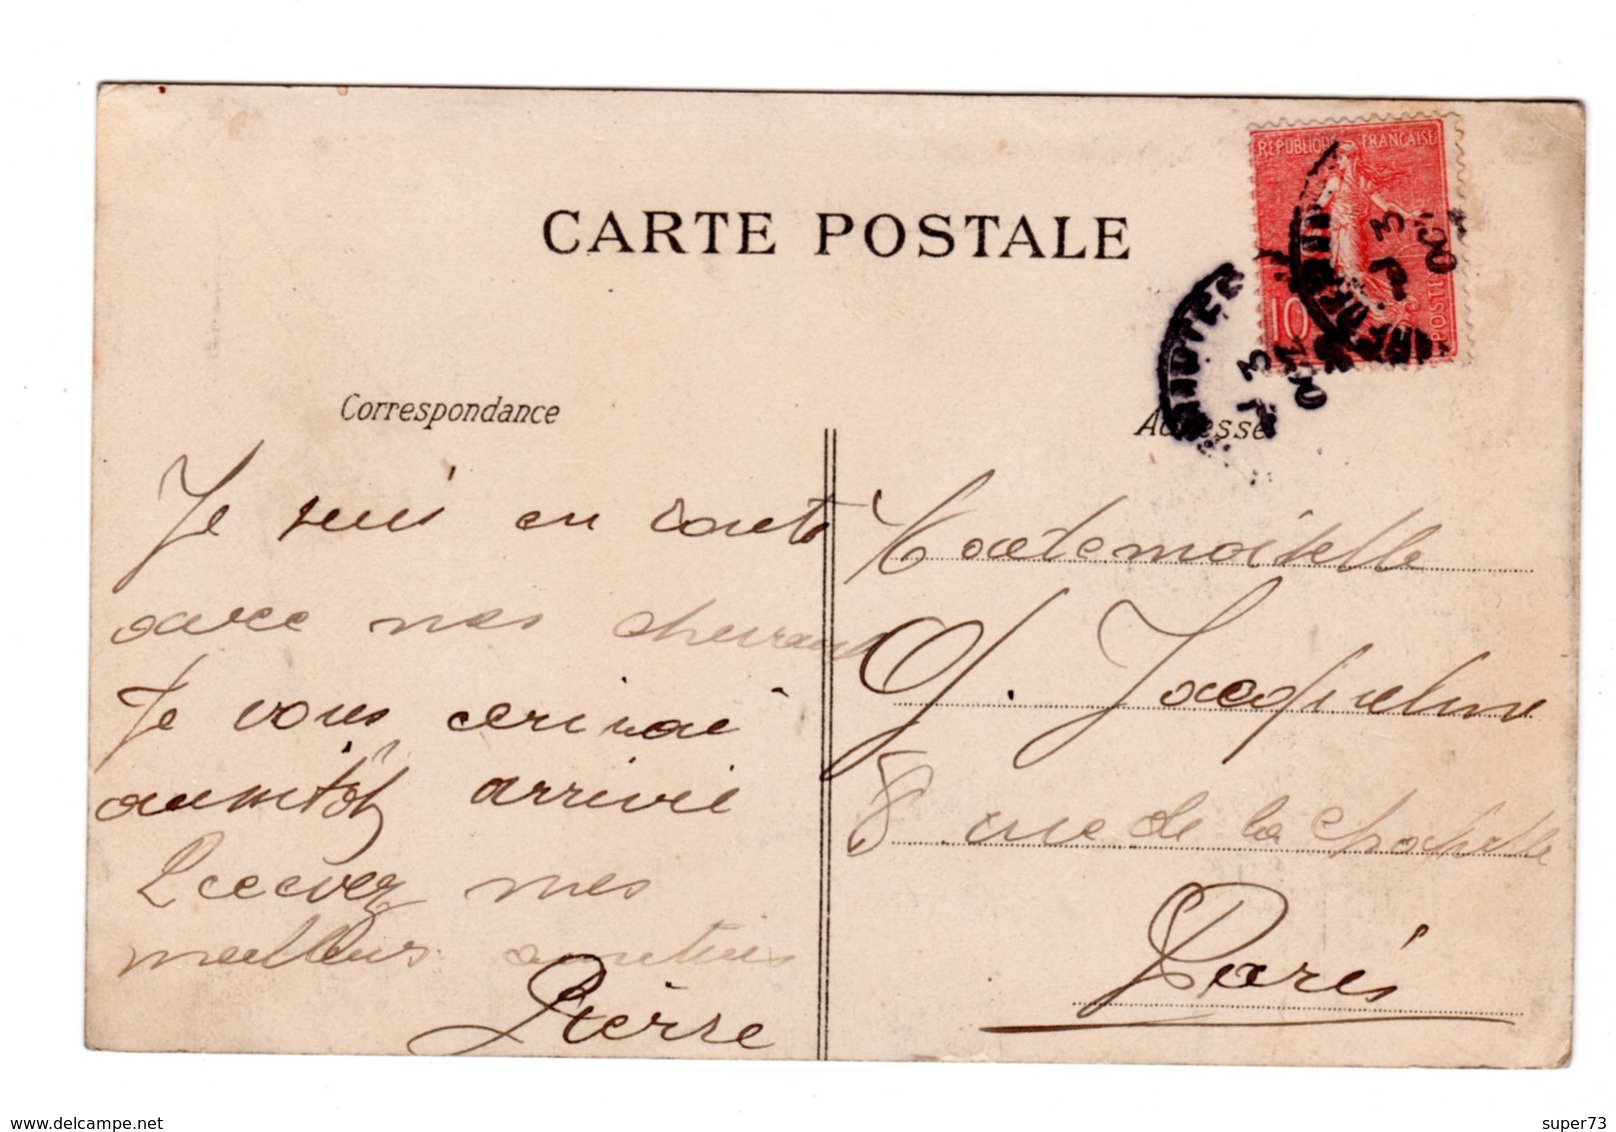 CARTE POSTALE
REPUBLIQUE FRANCAISE
10
POSTES
J 3
OCT
J 3
OCT
Correspondance
Adresse
Je suis en route
avec nos chevaux
Je vous ecrirai
aussitôt arrivé
Recevez mes
meilleurs amitiés
Pierre
Mademoiselle
G. Jacqueline
8 rue de la Chapelle
Paris
super73